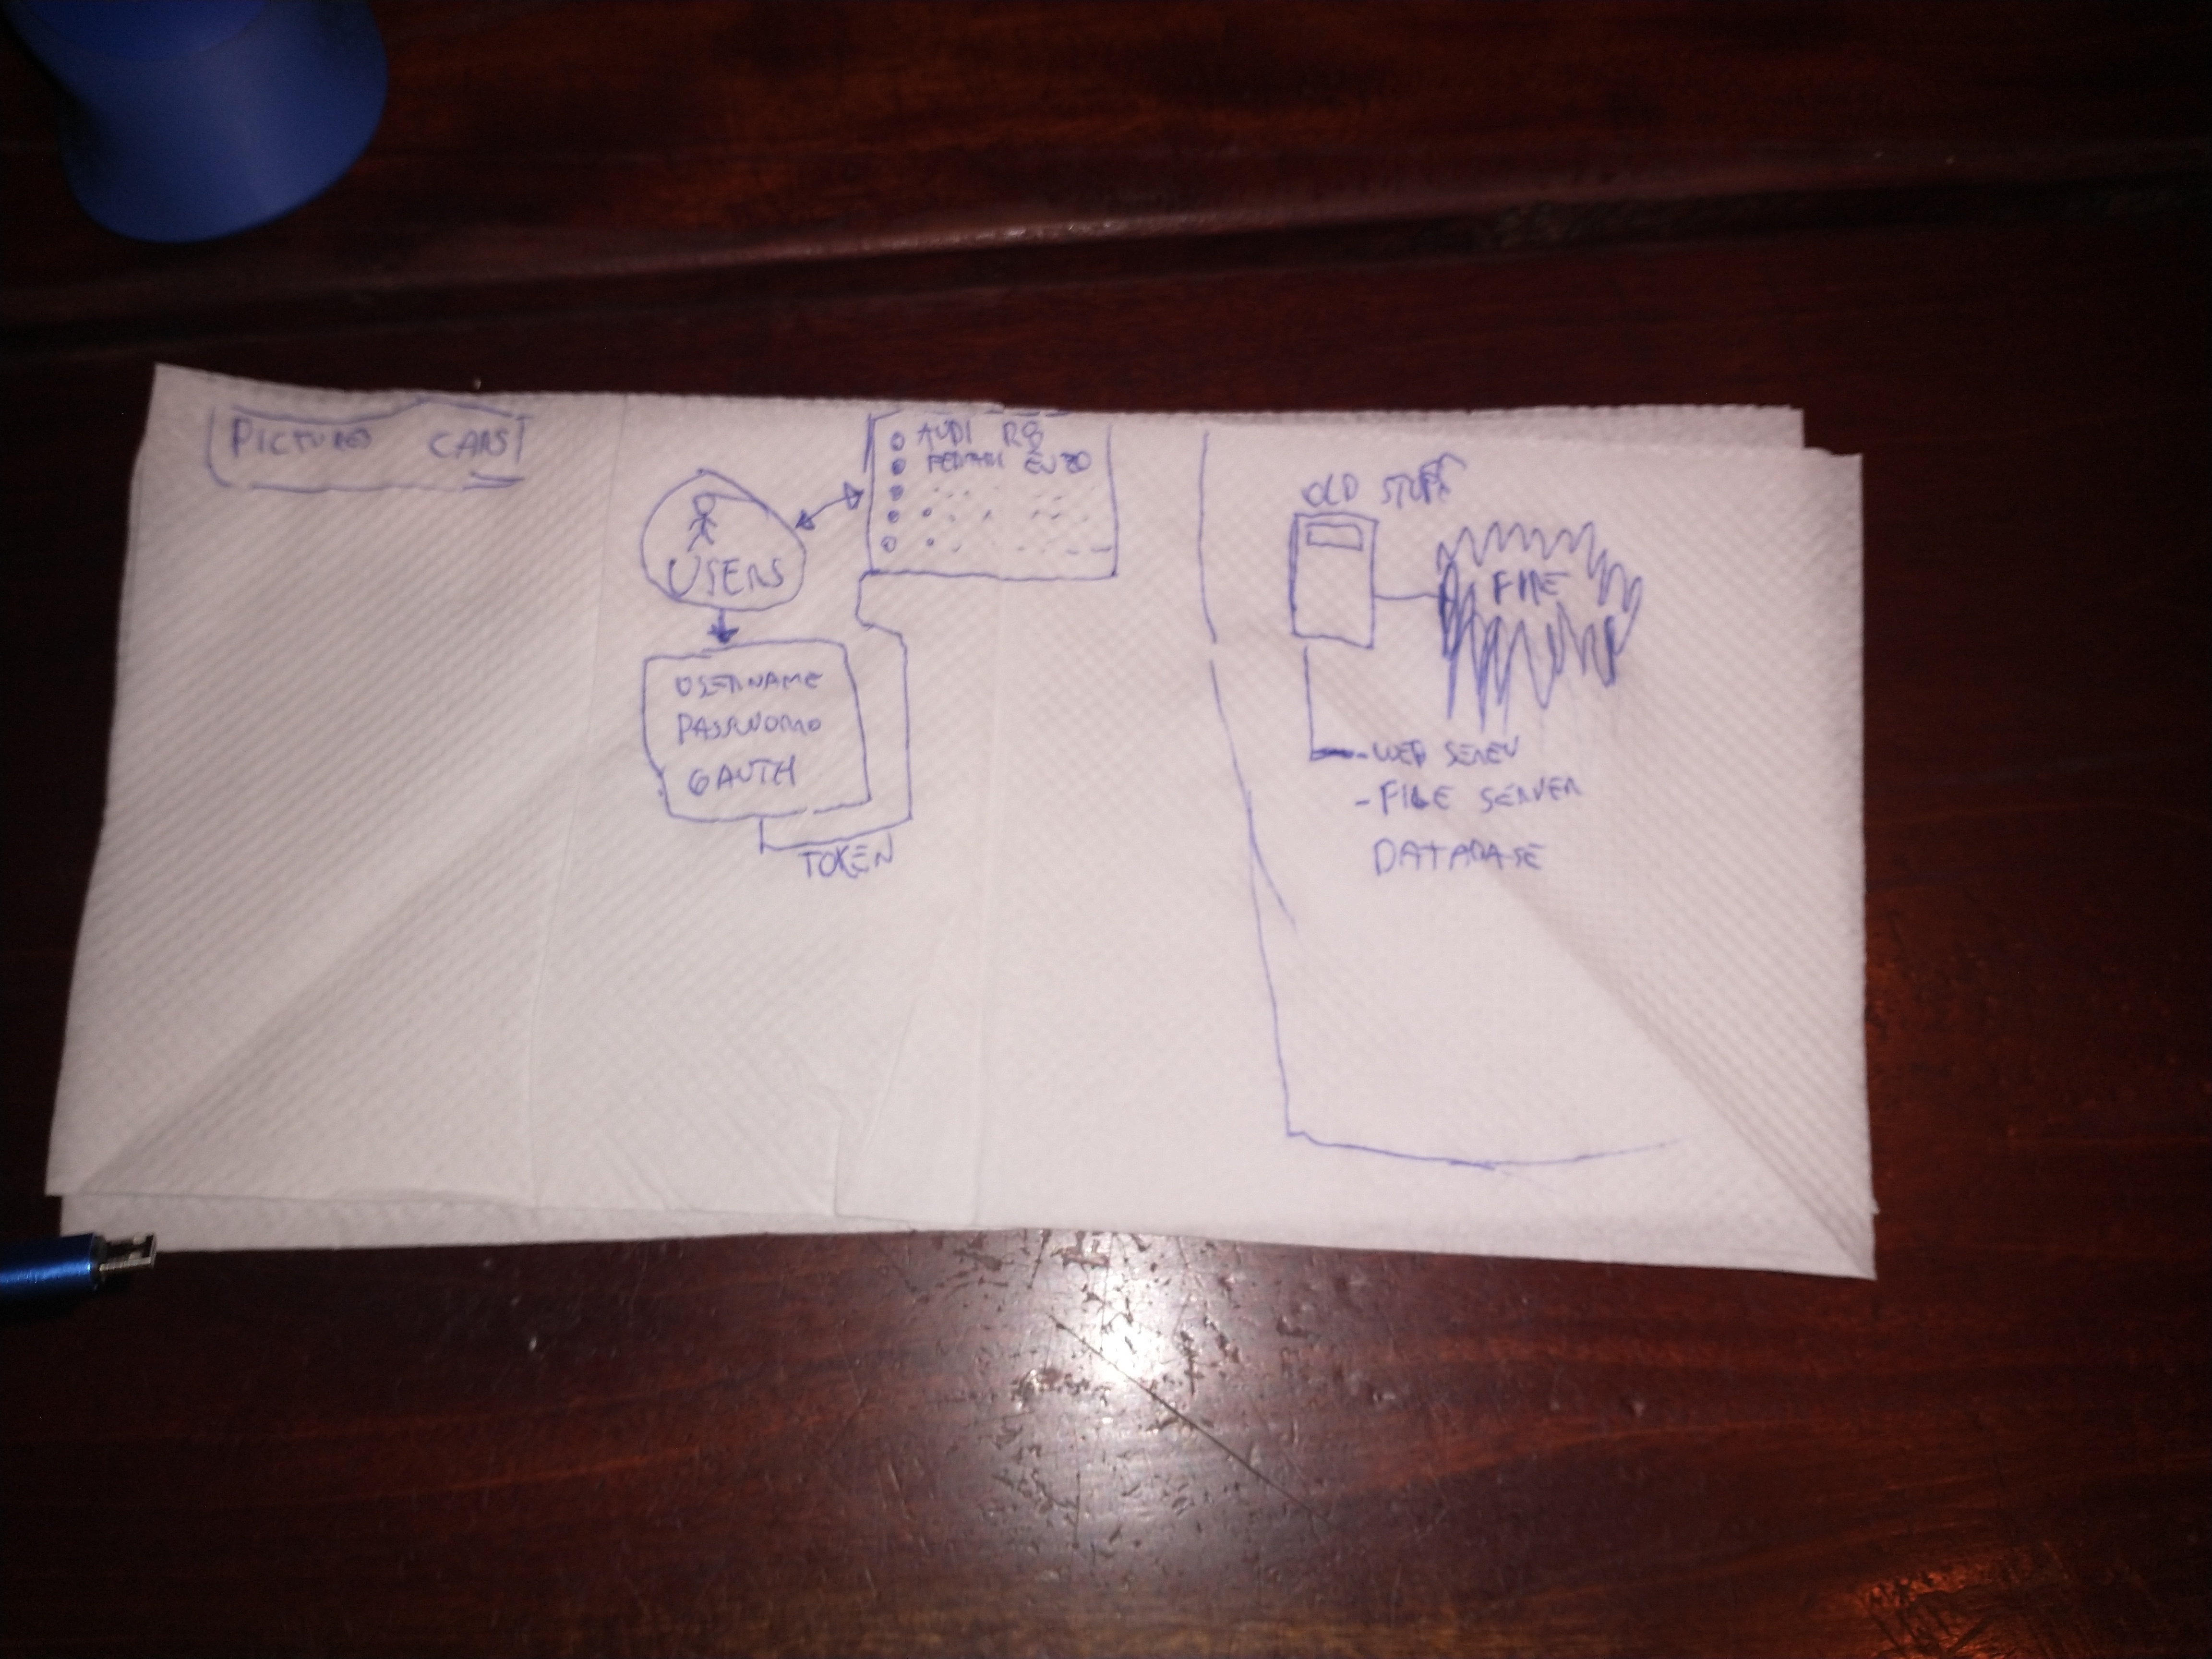 PICTURES CARS
AUDI R8
FERRARI ENZO
USERS
USERNAME
PASSWORD
OAUTH
TOKEN
OLD STUFF
FIRE
- WEB SERV
- FILE SERVER
DATABASE